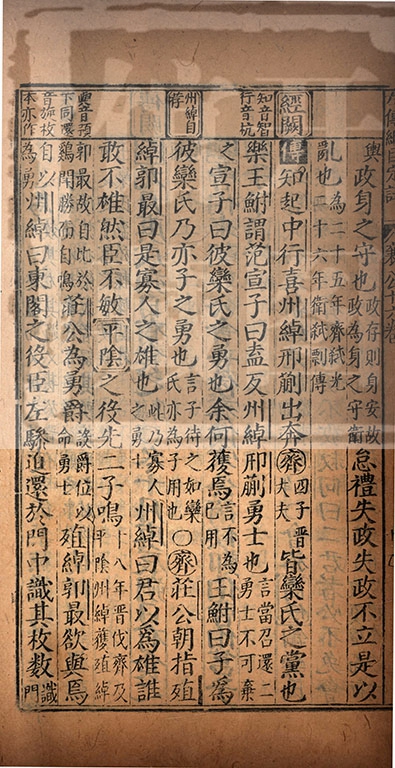 輿政身之守也政存則身安故政為身之守衛怠禮失政失政不立是以
亂也為二十五年齊弒光二十六年衛弒剽傳
經闕
傳知起中行喜州綽邢蒯出奔齊四子晉大夫皆欒氏之黨也
知音智行音坑
欒王鮒謂范宣子曰盍反州綽邢蒯勇士也言當召還二勇士不可棄
之宣子曰彼欒氏之勇也余何獲焉言不為己用王鮒曰子為
州綽自
彼欒氏乃亦子之勇也言子待之如欒氏亦為子用也○齊莊公朝指殖
綽郭最曰是寡人之雄也此乃寡人之勇士州綽曰君以為雄誰
敢不雄然臣不敏平陰之役先二子鳴十八年晉伐齊及平陰州綽獲殖綽
與音預下同還音旋枚本亦作
郭最故自比於鷄鬥勝而自鳴莊公為勇爵設爵位以命勇士殖綽郭最欲與焉
自以為勇州綽曰東閭之役臣左驂迫還於門中識其枚數識門